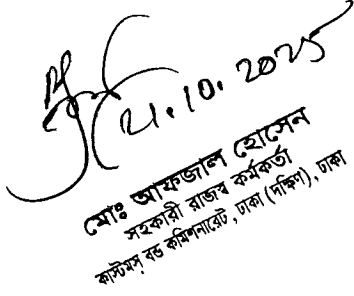 21.10.2025
মোঃ আফজাল হোসেন
সহকারী রাজস্ব কর্মকর্তা
কাস্টমস্ বন্ড কমিশনারেট, ঢাকা (দক্ষিণ), ঢাকা